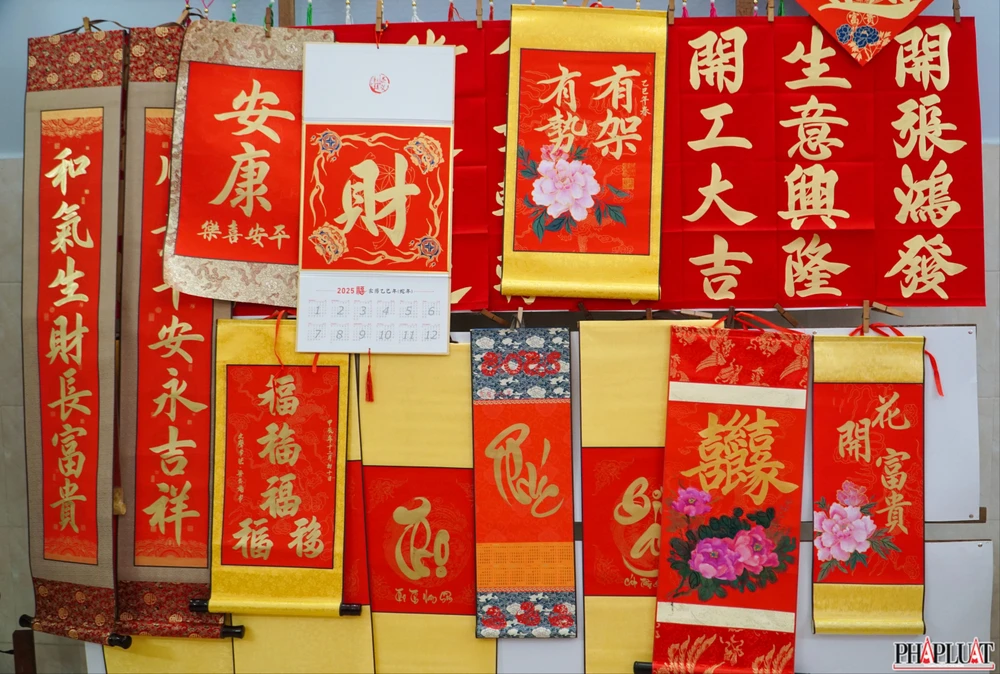 和氣生財長富貴
安永吉祥
安康
平安喜樂
財
2025
1 2 3 4 5 6
7 8 9 10 11 12
乙巳年春
有架
有勢
開張鴻發
生意興隆
開工大吉
福
福
福
福 福
Thọ
2025
Phúc
花開富貴
PHAPLUAT